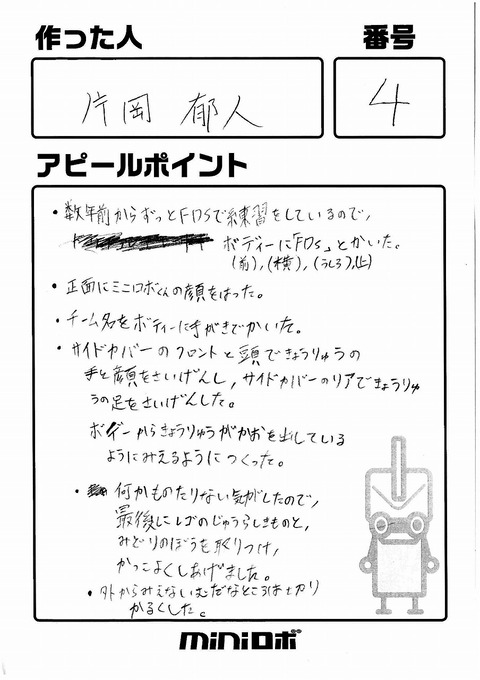 作った人
番号
片岡 郁人
4
アピールポイント
・数年前からずっとFDSで練習をしているので、
ボディーに「FDs」とかいた。
(前),(横),(うしろ),(上)
・正面にミニロボくんの顔をはった。
・チーム名をボディーに手がきでかいた。
・サイドカバーのフロントと頭できょうりゅうの
手と顔をさいげんし,サイドカバーのリアできょうりゅ
うの足をさいげんした。
ボディーからきょうりゅうがかおを出している
ようにみえるようにつくった。
・何かものたりない気がしたので,
最後にレゴのじゅうらしきものと,
みどりのぼうを取りつけ,
かっこよくしあげました。
・外からみえないむだなところは切り
かるくした。
miniロボ